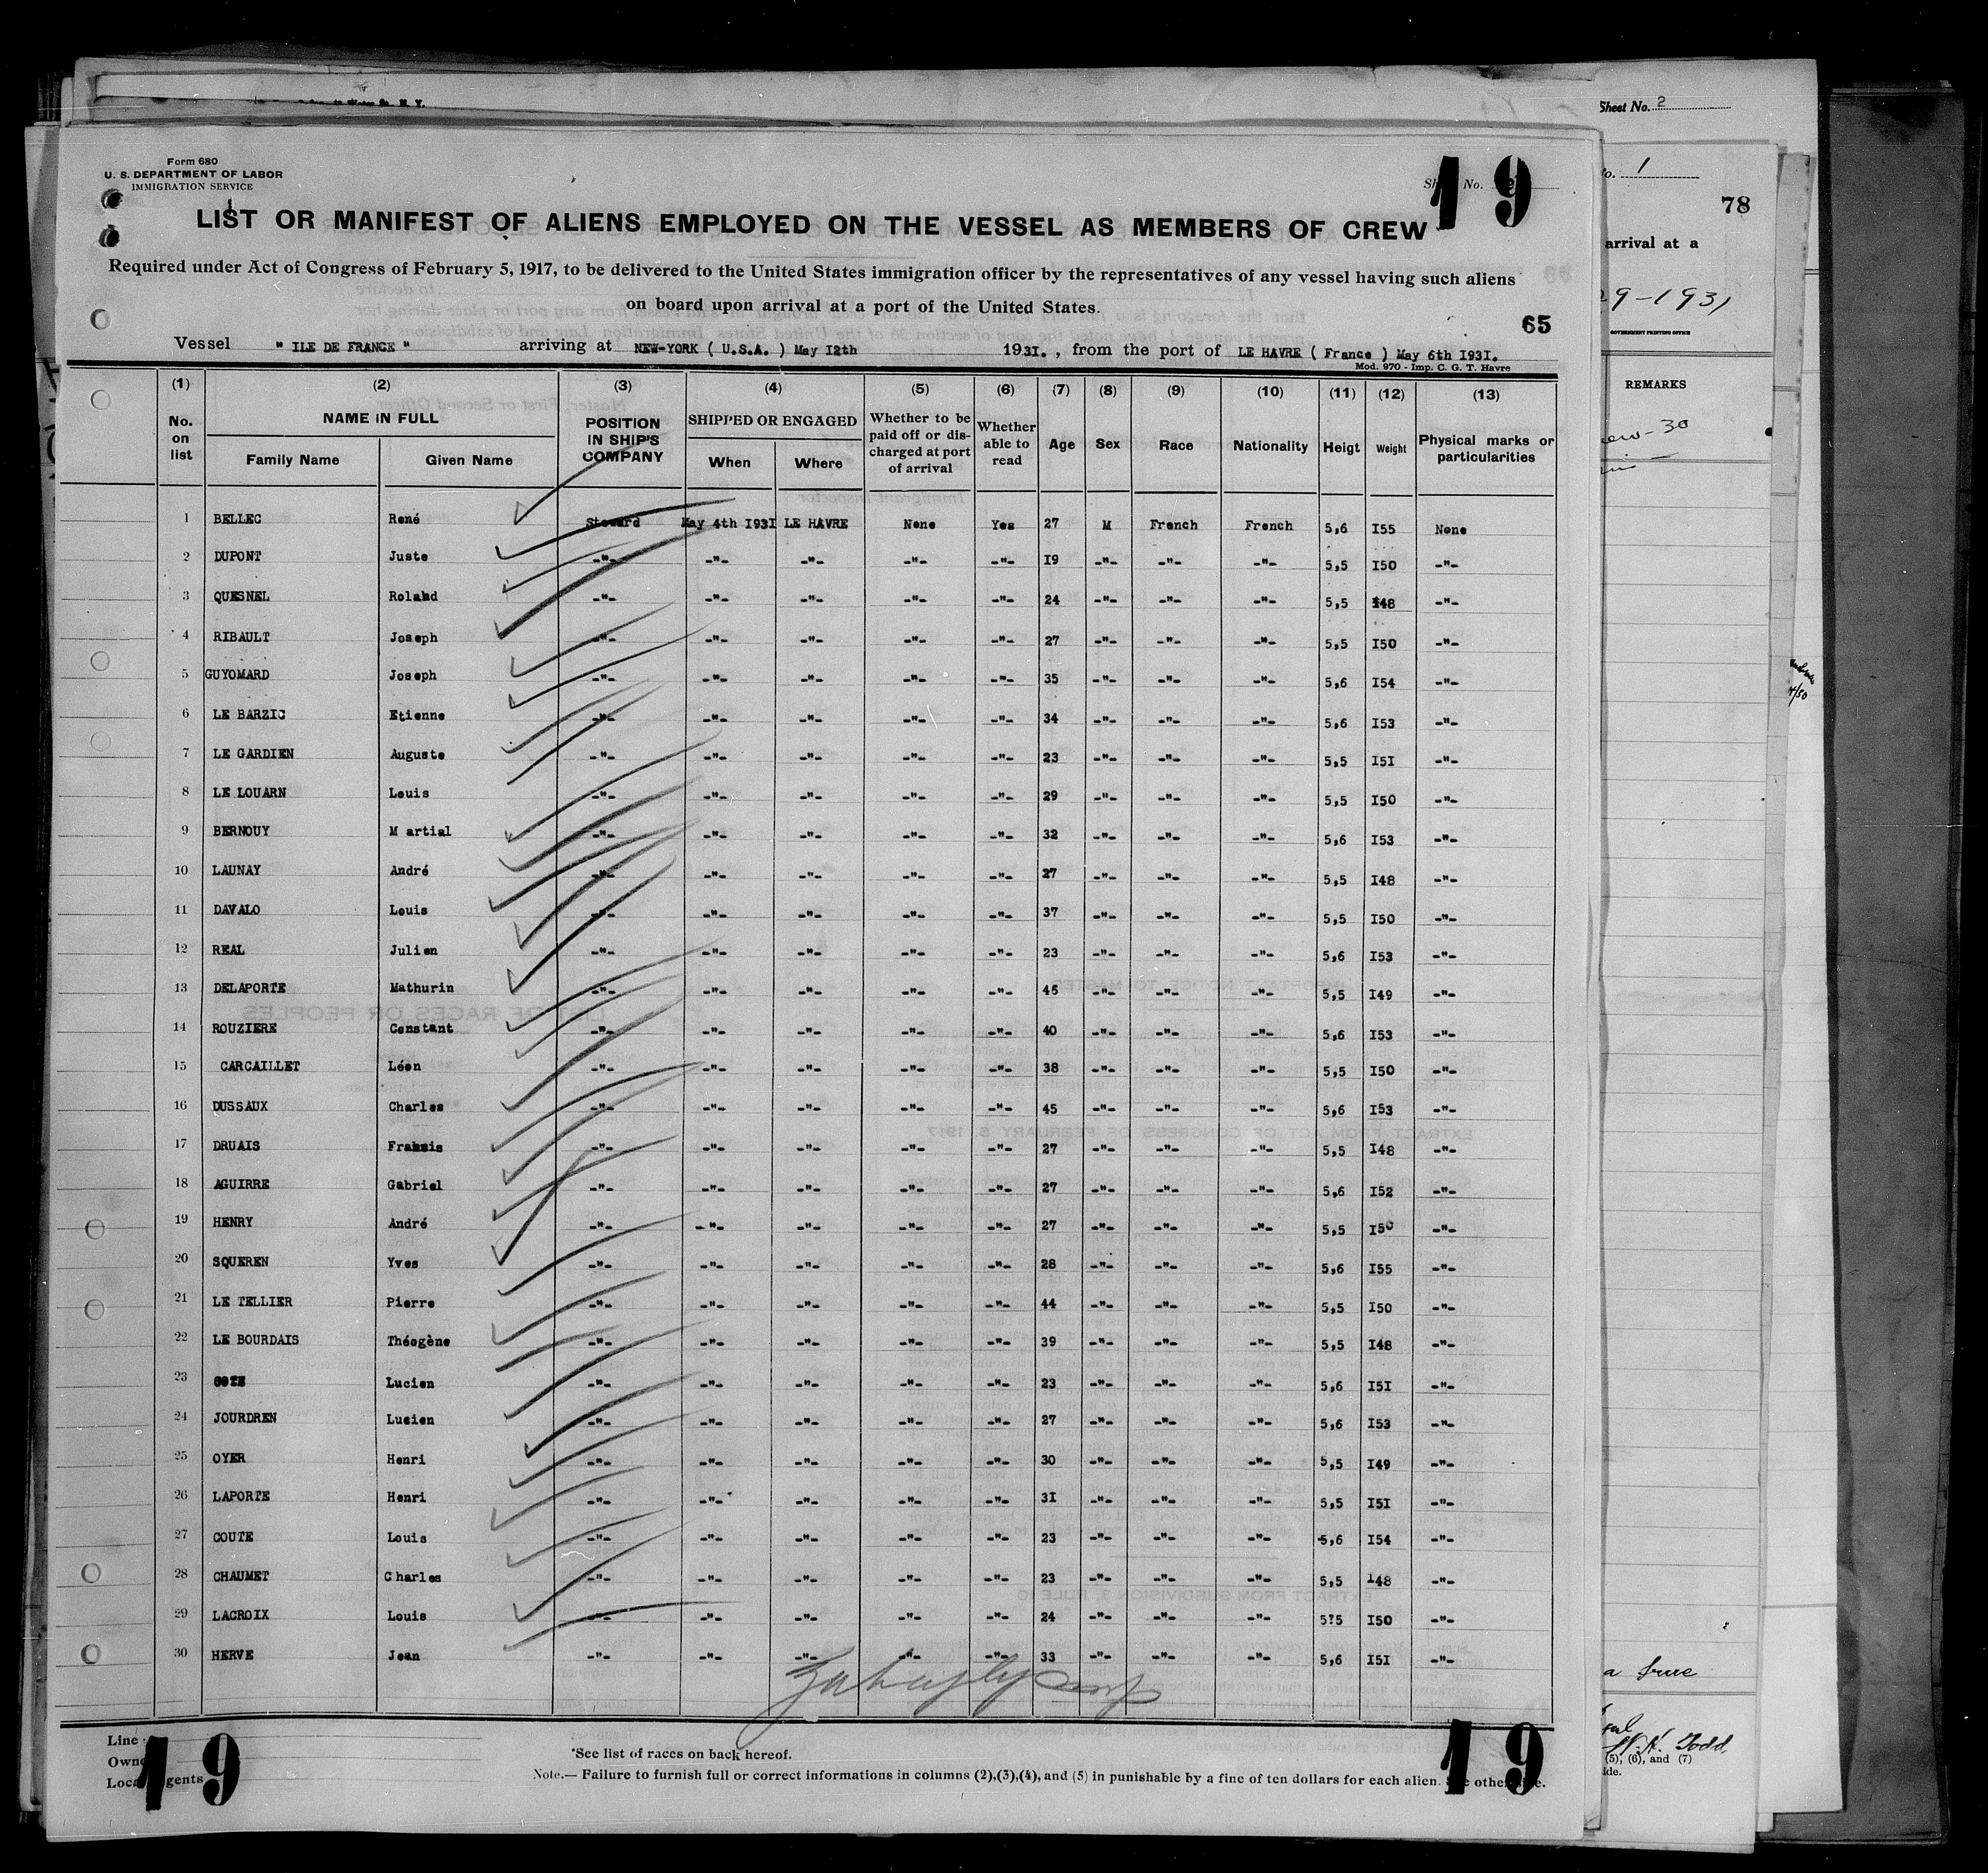 Sheet No. 2
No. 1
78
arrival at a
29-1931
GOVERNMENT PRINTING OFFICE
REMARKS
Form 680
U. S. DEPARTMENT OF LABOR
IMMIGRATION SERVICE
No.
19
LIST OR MANIFEST OF ALIENS EMPLOYED ON THE VESSEL AS MEMBERS OF CREW
Required under Act of Congress of February 5, 1917, to be delivered to the United States immigration officer by the representatives of any vessel having such aliens
on board upon arrival at a port of the United States.
65
Vessel " ILE DE FRANCE " arriving at NEW-YORK ( U.S.A. ) May I2th 1931. , from the port of LE HAVRE ( France ) May 6th I93I.
Mod. 970 - Imp. C. G. T. Havre
(1) (2) (3) (4) (5) (6) (7) (8) (9) (10) (11) (12) (13)
No. on list NAME IN FULL Family Name Given Name POSITION IN SHIP'S COMPANY SHIPPED OR ENGAGED When Where Whether to be paid off or discharged at port of arrival Whether able to read Age Sex Race Nationality Heigt Weight Physical marks or particularities
1 BELLEC René Steward May 4th I93I LE HAVRE None Yes 27 M French French 5,6 I55 None
2 DUPONT Juste -"- -"- -"- -"- -"- I9 -"- -"- -"- 5,5 I50 -"-
3 QUESNEL Roland -"- -"- -"- -"- -"- 24 -"- -"- -"- 5,5 I48 -"-
4 RIBAULT Joseph -"- -"- -"- -"- -"- 27 -"- -"- -"- 5,5 I50 -"-
5 GUYOMARD Joseph -"- -"- -"- -"- -"- 35 -"- -"- -"- 5,6 I54 -"-
6 LE BARZIC Etienne -"- -"- -"- -"- -"- 34 -"- -"- -"- 5,6 I53 -"-
7 LE GARDIEN Auguste -"- -"- -"- -"- -"- 23 -"- -"- -"- 5,5 I5I -"-
8 LE LOUARN Louis -"- -"- -"- -"- -"- 29 -"- -"- -"- 5,5 I50 -"-
9 BERNOUY M artial -"- -"- -"- -"- -"- 32 -"- -"- -"- 5,6 I53 -"-
10 LAUNAY André -"- -"- -"- -"- -"- 27 -"- -"- -"- 5,5 I48 -"-
11 DAVALO Louis -"- -"- -"- -"- -"- 37 -"- -"- -"- 5,5 I50 -"-
12 REAL Julien -"- -"- -"- -"- -"- 23 -"- -"- -"- 5,6 I53 -"-
13 DELAPORTE Mathurin -"- -"- -"- -"- -"- 45 -"- -"- -"- 5,5 I49 -"-
14 ROUZIERE Constant -"- -"- -"- -"- -"- 40 -"- -"- -"- 5,6 I53 -"-
15 CARCAILLET Léon -"- -"- -"- -"- -"- 38 -"- -"- -"- 5,5 I50 -"-
16 DUSSAUX Charles -"- -"- -"- -"- -"- 45 -"- -"- -"- 5,6 I53 -"-
17 DRUAIS -"- -"- -"- -"- -"- 27 -"- -"- -"- 5,5 I48 -"-
18 AGUIRRE Gabriel -"- -"- -"- -"- -"- 27 -"- -"- -"- 5,6 I52 -"-
19 HENRY André -"- -"- -"- -"- -"- 27 -"- -"- -"- 5,5 I50 -"-
20 SQUEREN Yves -"- -"- -"- -"- -"- 28 -"- -"- -"- 5,6 I55 -"-
21 LE TELLIER Pierre -"- -"- -"- -"- -"- 44 -"- -"- -"- 5,5 I50 -"-
22 LE BOURDAIS Théogène -"- -"- -"- -"- -"- 39 -"- -"- -"- 5,5 I48 -"-
23 Lucien -"- -"- -"- -"- -"- 23 -"- -"- -"- 5,6 I5I -"-
24 JOURDREN Lucien -"- -"- -"- -"- -"- 27 -"- -"- -"- 5,6 I53 -"-
25 OYER Henri -"- -"- -"- -"- -"- 30 -"- -"- -"- 5,5 I49 -"-
26 LAPORTE Henri -"- -"- -"- -"- -"- 3I -"- -"- -"- 5,5 I5I -"-
27 COUTE Louis -"- -"- -"- -"- -"- 23 -"- -"- -"- 5,6 I54 -"-
28 CHAUMET Charles -"- -"- -"- -"- -"- 23 -"- -"- -"- 5,5 I48 -"-
29 LACROIX Louis -"- -"- -"- -"- -"- 24 -"- -"- -"- 5?5 I50 -"-
30 HERVE Jean -"- -"- -"- -"- -"- 33 -"- -"- -"- 5,6 I5I -"-
a true
W. H. Todd
(5), (6), and (7)
Line
*See list of races on back hereof.
Note.— Failure to furnish full or correct informations in columns (2),(3),(4), and (5) in punishable by a fine of ten dollars for each alien.
19
19